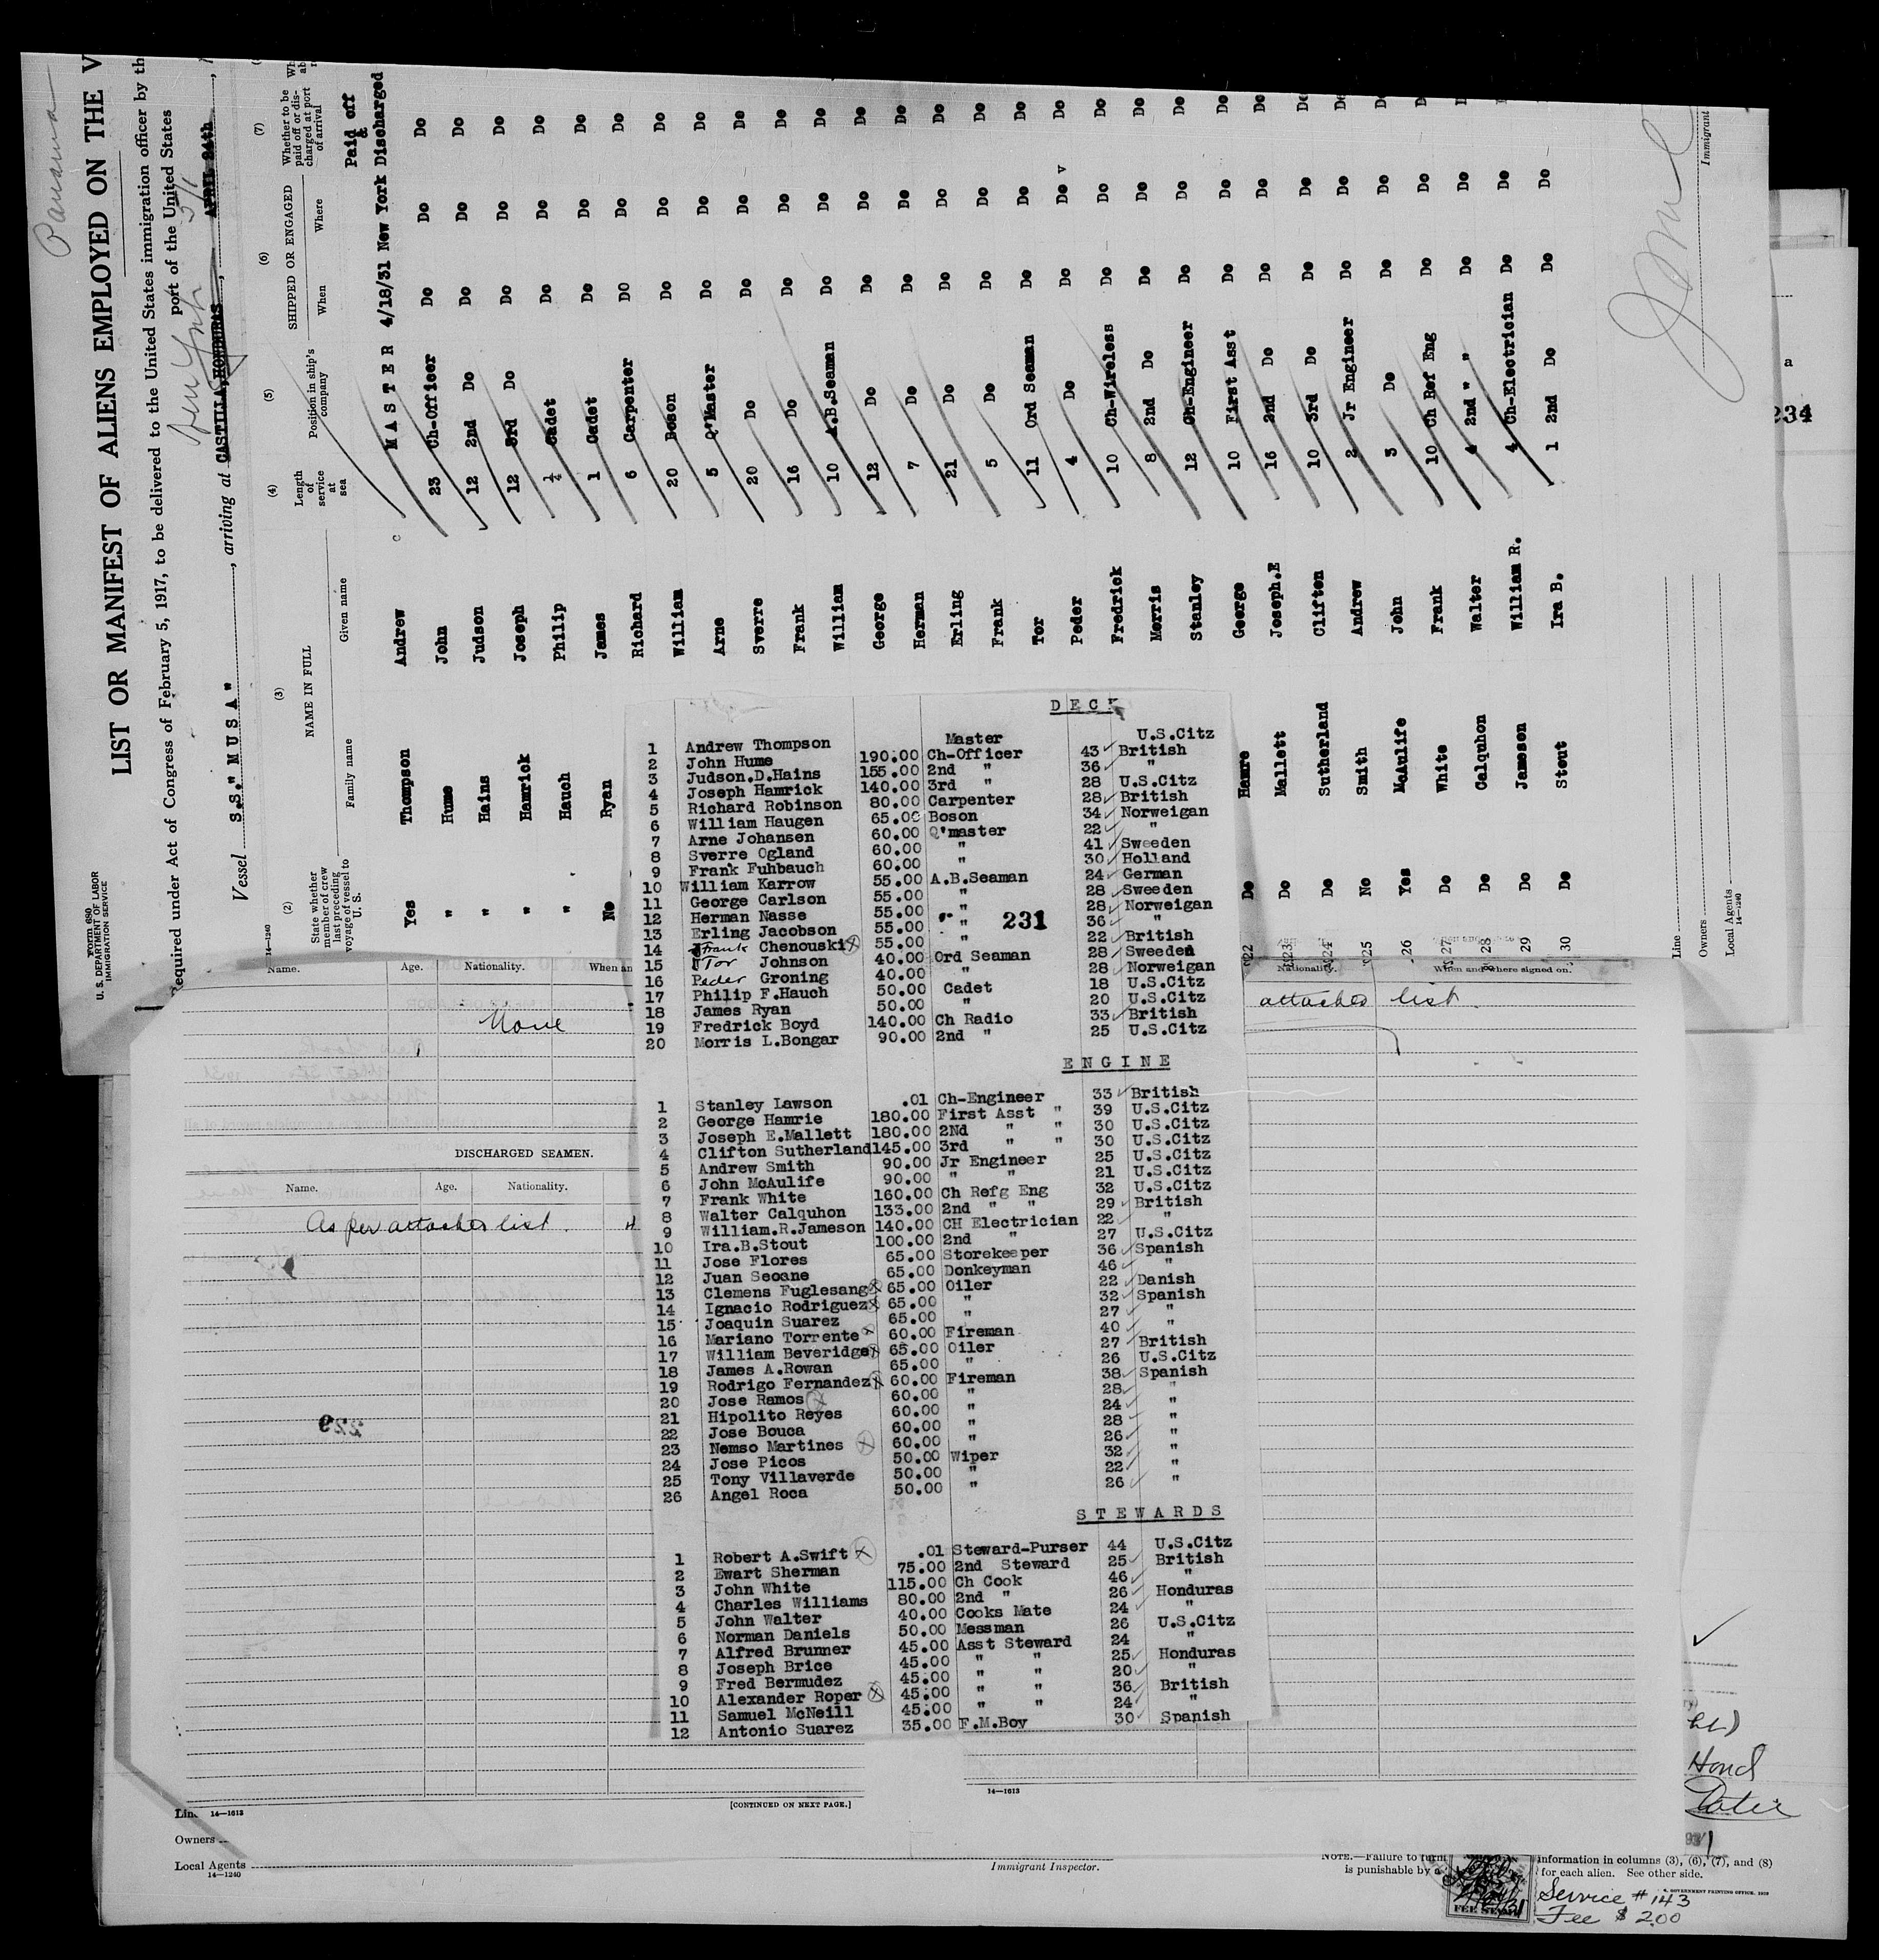 Panama
LIST OR MANIFEST OF ALIENS EMPLOYED ON THE V
Required under Act of Congress of February 5, 1917, to be delivered to the United States immigration officer by th
port of the United States
Form 680
U. S. DEPARTMENT OF LABOR
IMMIGRATION SERVICE
New York 5/1
Vessel S.S." M U S A ", arriving at CASTILLA,HONDURAS, APRIL 24th
14—1240
(2) (3) (4) (5) (6) (7)
State whether member of crew last preceding voyage of vessel to U. S.
NAME IN FULL
Family name Given name
Length of service at sea
Position in ship's company
SHIPPED OR ENGAGED
When Where
Whether to be paid off or discharged at port of arrival
Paid off
&
Yes Thompson Andrew M A S T E R 4/18/31 New York Discharged
" Hume John 23 Ch-Officer Do Do Do
" Hains Judson 12 2nd Do Do Do Do
" Hamrick Joseph 12 3rd Do Do Do Do
" Hauch Philip ½ Cadet Do Do Do
No Ryan James 1 Cadet Do Do Do
Richard 6 Carpenter DO Do Do
William 20 Boson Do Do Do
Arne 5 Q'Master Do Do Do
Sverre 20 Do Do Do Do
Frank 16 Do Do Do Do
William 10 A.B.Seaman Do Do Do
George 12 Do Do Do Do
Herman 7 Do Do Do Do
Erling 21 Do Do Do Do
Frank 5 Do Do Do Do
Tor 11 Ord Seaman Do Do Do
Peder 4 Do Do Do Do
Fredrick 10 Ch-Wireless Do Do Do
Morris 8 2nd Do Do Do Do
Stanley 12 Ch-Engineer Do Do Do
22 Do Hamre George 10 First Asst Do Do Do
23 Do Mallett Joseph.E 16 2nd Do Do Do Do
24 Do Sutherland Clifton 10 3rd Do Do Do Do
25 No Smith Andrew 2 Jr Engineer Do Do De
26 Yes McAulife John 3 Do Do Do
27 Do White Frank 10 Ch Ref Eng Do Do
28 Do Calquhon Walter 4 2nd " " Do Do
29 Do Jameson William R. 4 Ch-Electrician Do Do
30 Do Stout Ira B. 1 2nd Do Do Do
Line
Owners
Local Agents
14—1240
Immigrant
234
D E C K
1 Andrew Thompson Master U.S.Citz
2 John Hume 190.00 Ch-Officer 43 British
3 Judson.D.Hains 155.00 2nd " 36 "
4 Joseph Hamrick 140.00 3rd " 28 U.S.Citz
5 Richard Robinson 80.00 Carpenter 28 British
6 William Haugen 65.00 Boson 34 Norweigan
7 Arne Johansen 60.00 Q'master 22 "
8 Sverre Ogland 60.00 " 41 Sweeden
9 Frank Fuhbauch 60.00 " 30 Holland
10 William Karrow 55.00 A.B.Seaman 24 German
11 George Carlson 55.00 " 28 Sweeden
12 Herman Nasse 55.00 " 28 Norweigan
13 Erling Jacobson 55.00 " 36 "
231
14 Frank Chenouski 55.00 " 22 British
15 Tor Johnson 40.00 Ord Seaman 28 Sweeden
16 Peder Groning 40.00 " 28 Norweigan
17 Philip F.Hauch 50.00 Cadet 18 U.S.Citz
18 James Ryan 50.00 " 20 U.S.Citz
19 Fredrick Boyd 140.00 Ch Radio 33 British
20 Morris L.Bongar 90.00 2nd " 25 U.S.Citz
E N G I N E
1 Stanley Lawson .01 Ch-Engineer 33 British
2 George Hamrie 180.00 First Asst " 39 U.S.Citz
3 Joseph E.Mallett 180.00 2Nd " " 30 U.S.Citz
4 Clifton Sutherland 145.00 3rd " " 30 U.S.Citz
5 Andrew Smith 90.00 Jr Engineer 25 U.S.Citz
6 John McAulife 90.00 " " 21 U.S.Citz
7 Frank White 160.00 Ch Refg Eng 32 U.S.Citz
8 Walter Calquhon 133.00 2nd " " 29 British
9 William.R.Jameson 140.00 CH Electrician 22 "
10 Ira.B.Stout 100.00 2nd " 27 U.S.Citz
11 Jose Flores 65.00 Storekeeper 36 Spanish
12 Juan Seoane 65.00 Donkeyman 46 "
13 Clemens Fuglesang 65.00 Oiler 22 Danish
14 Ignacio Rodriguez 65.00 " 32 Spanish
15 Joaquin Suarez 65.00 " 27 "
16 Mariano Torrente 60.00 Fireman 40 "
17 William Beveridge 65.00 Oiler 27 British
18 James A.Rowan 65.00 " 26 U.S.Citz
19 Rodrigo Fernandez 60.00 Fireman 38 Spanish
20 Jose Ramos 60.00 " 28 "
21 Hipolito Reyes 60.00 " 24 "
22 Jose Bouca 60.00 " 28 "
23 Nemso Martines 60.00 " 26 "
24 Jose Picos 50.00 Wiper 32 "
25 Tony Villaverde 50.00 " 22 "
26 Angel Roca 50.00 " 26 "
S T E W A R D S
1 Robert A.Swift .01 Steward-Purser 44 U.S.Citz
2 Ewart Sherman 75.00 2nd Steward 25 British
3 John White 115.00 Ch Cook 46 "
4 Charles Williams 80.00 2nd " 26 Honduras
5 John Walter 40.00 Cooks Mate 24 "
6 Norman Daniels 50.00 Messman 26 U.S.Citz
7 Alfred Brunner 45.00 Asst Steward 24 "
8 Joseph Brice 45.00 " " 25 Honduras
9 Fred Bermudez 45.00 " " 20 "
10 Alexander Roper 45.00 " " 36 British
11 Samuel McNeill 45.00 " " 24 "
12 Antonio Suarez 35.00 F.M.Boy 30 Spanish
Name. Age. Nationality. When an
None
Nationality. When and where signed on.
attached list
DISCHARGED SEAMEN.
Name. Age. Nationality.
As per attached list.
229
[CONTINUED ON NEXT PAGE.]
14—1613
14—1613
Line
Owners
Local Agents
14—1240
Immigrant Inspector.
Hond
NOTE.—Failure to furn information in columns (3), (6), (7), and (8)
is punishable by a for each alien. See other side.
GOVERNMENT PRINTING OFFICE
FEE STAMP
Service # 143
Fee $ 2.00